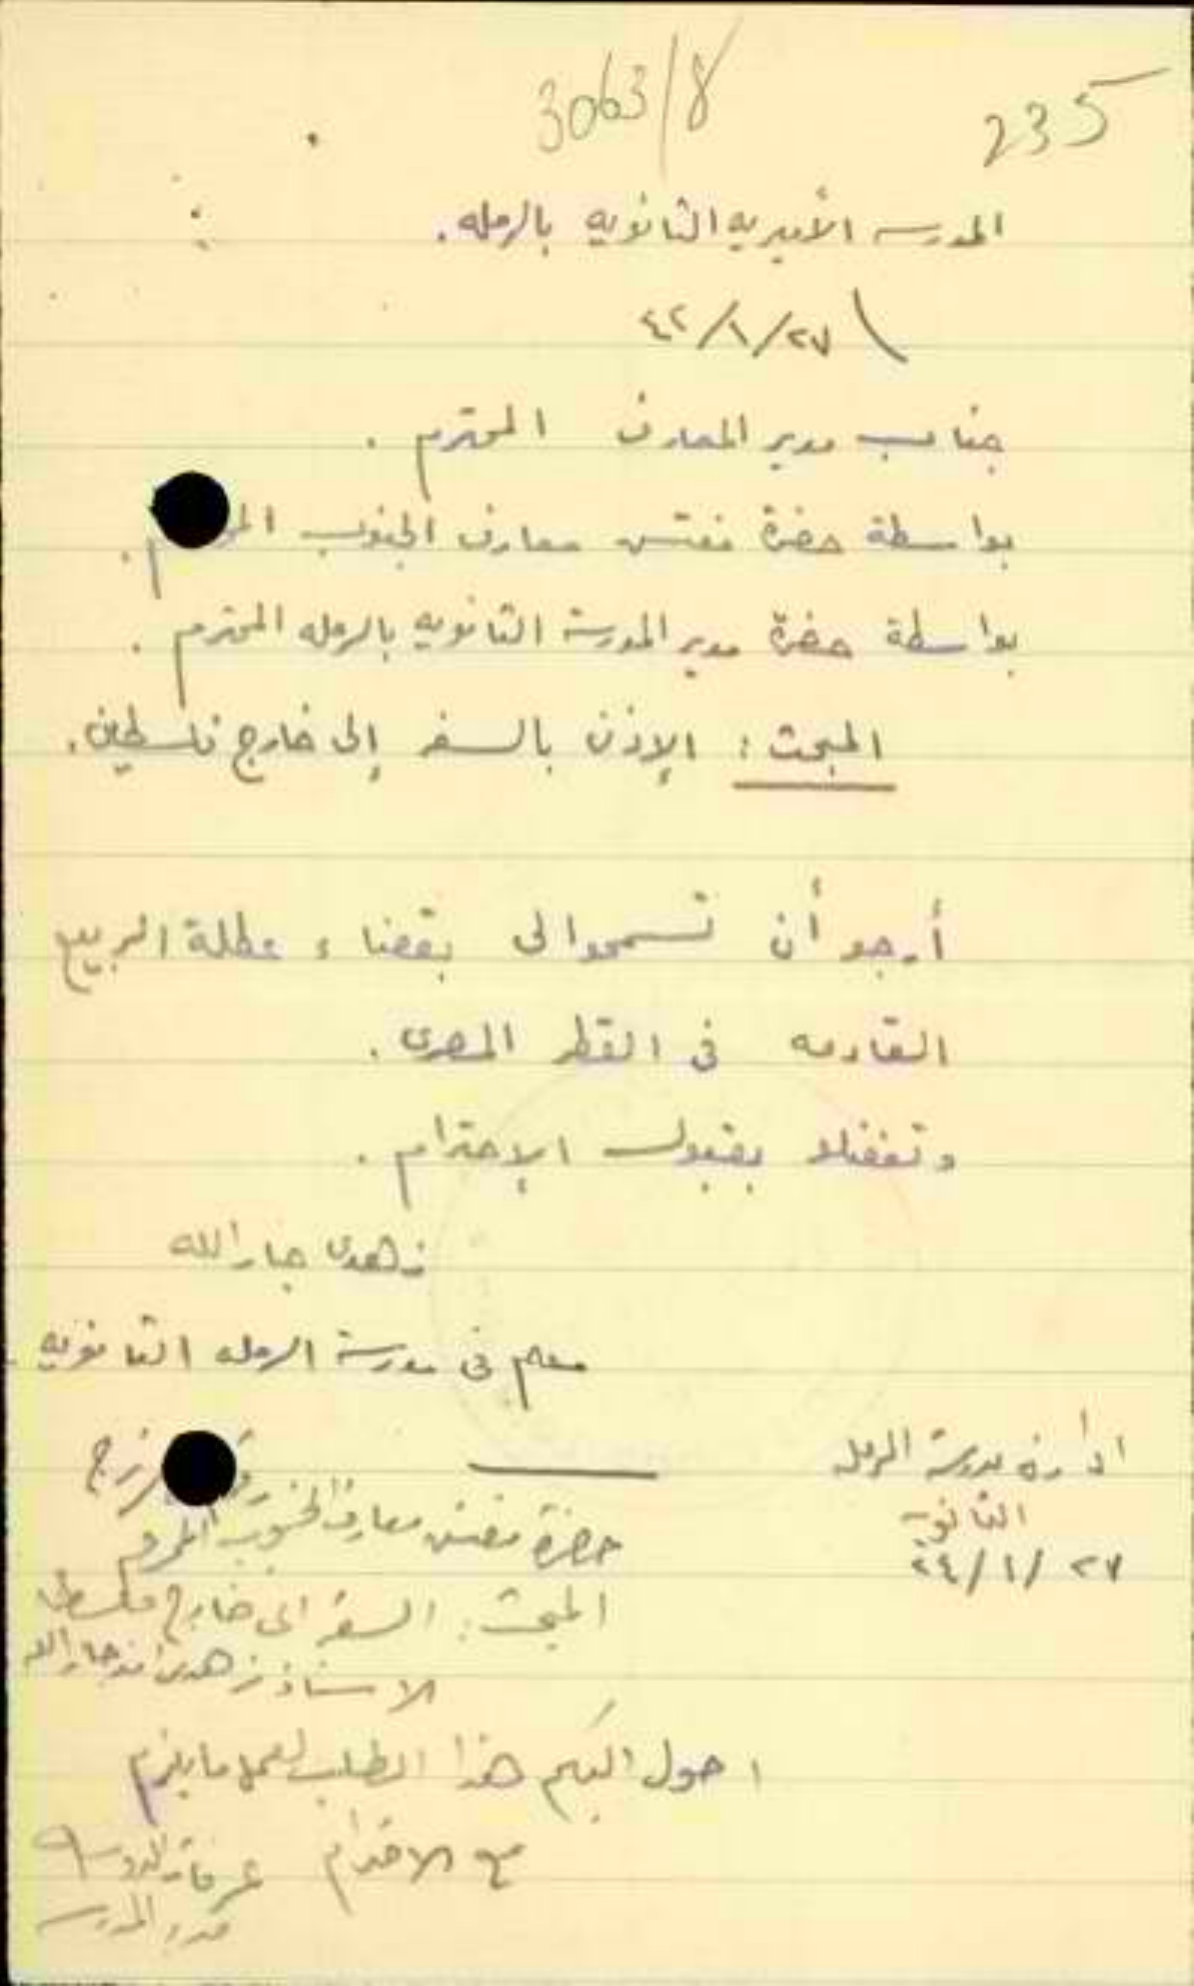 3063/8
235
المدرسه الأميريه الثانويه بالرمله.
٤٢/١/٢٧
جناب مدير المعارف المحترم.
بواسطة حضرة مفتش معارف الجنوب المحترم.
بواسطة حضرة مدير المدرسة الثانويه بالرمله المحترم.
المبحث: الإذن بالسفر إلى خارج فلسطين.
أرجو أن تسمحوا لى بقضاء عطلة الربيع
القادمه فى القطر المصرى.
وتفضلوا بقبول الإحترام.
زهدى جار الله
معلم فى مدرسة الرمله الثانويه.
ادارة مدرسة الرمله
الثانوية
٢٧/١/٤٢
حضرة مفتش معارف الجنوب المحترم
المبحث: السفر الى خارج فلسطين
الاستاذ زهدى افندي جار الله
احول اليكم هذا الطلب لعمل ما يلزم
مع الاحترام
مدير المدرسه